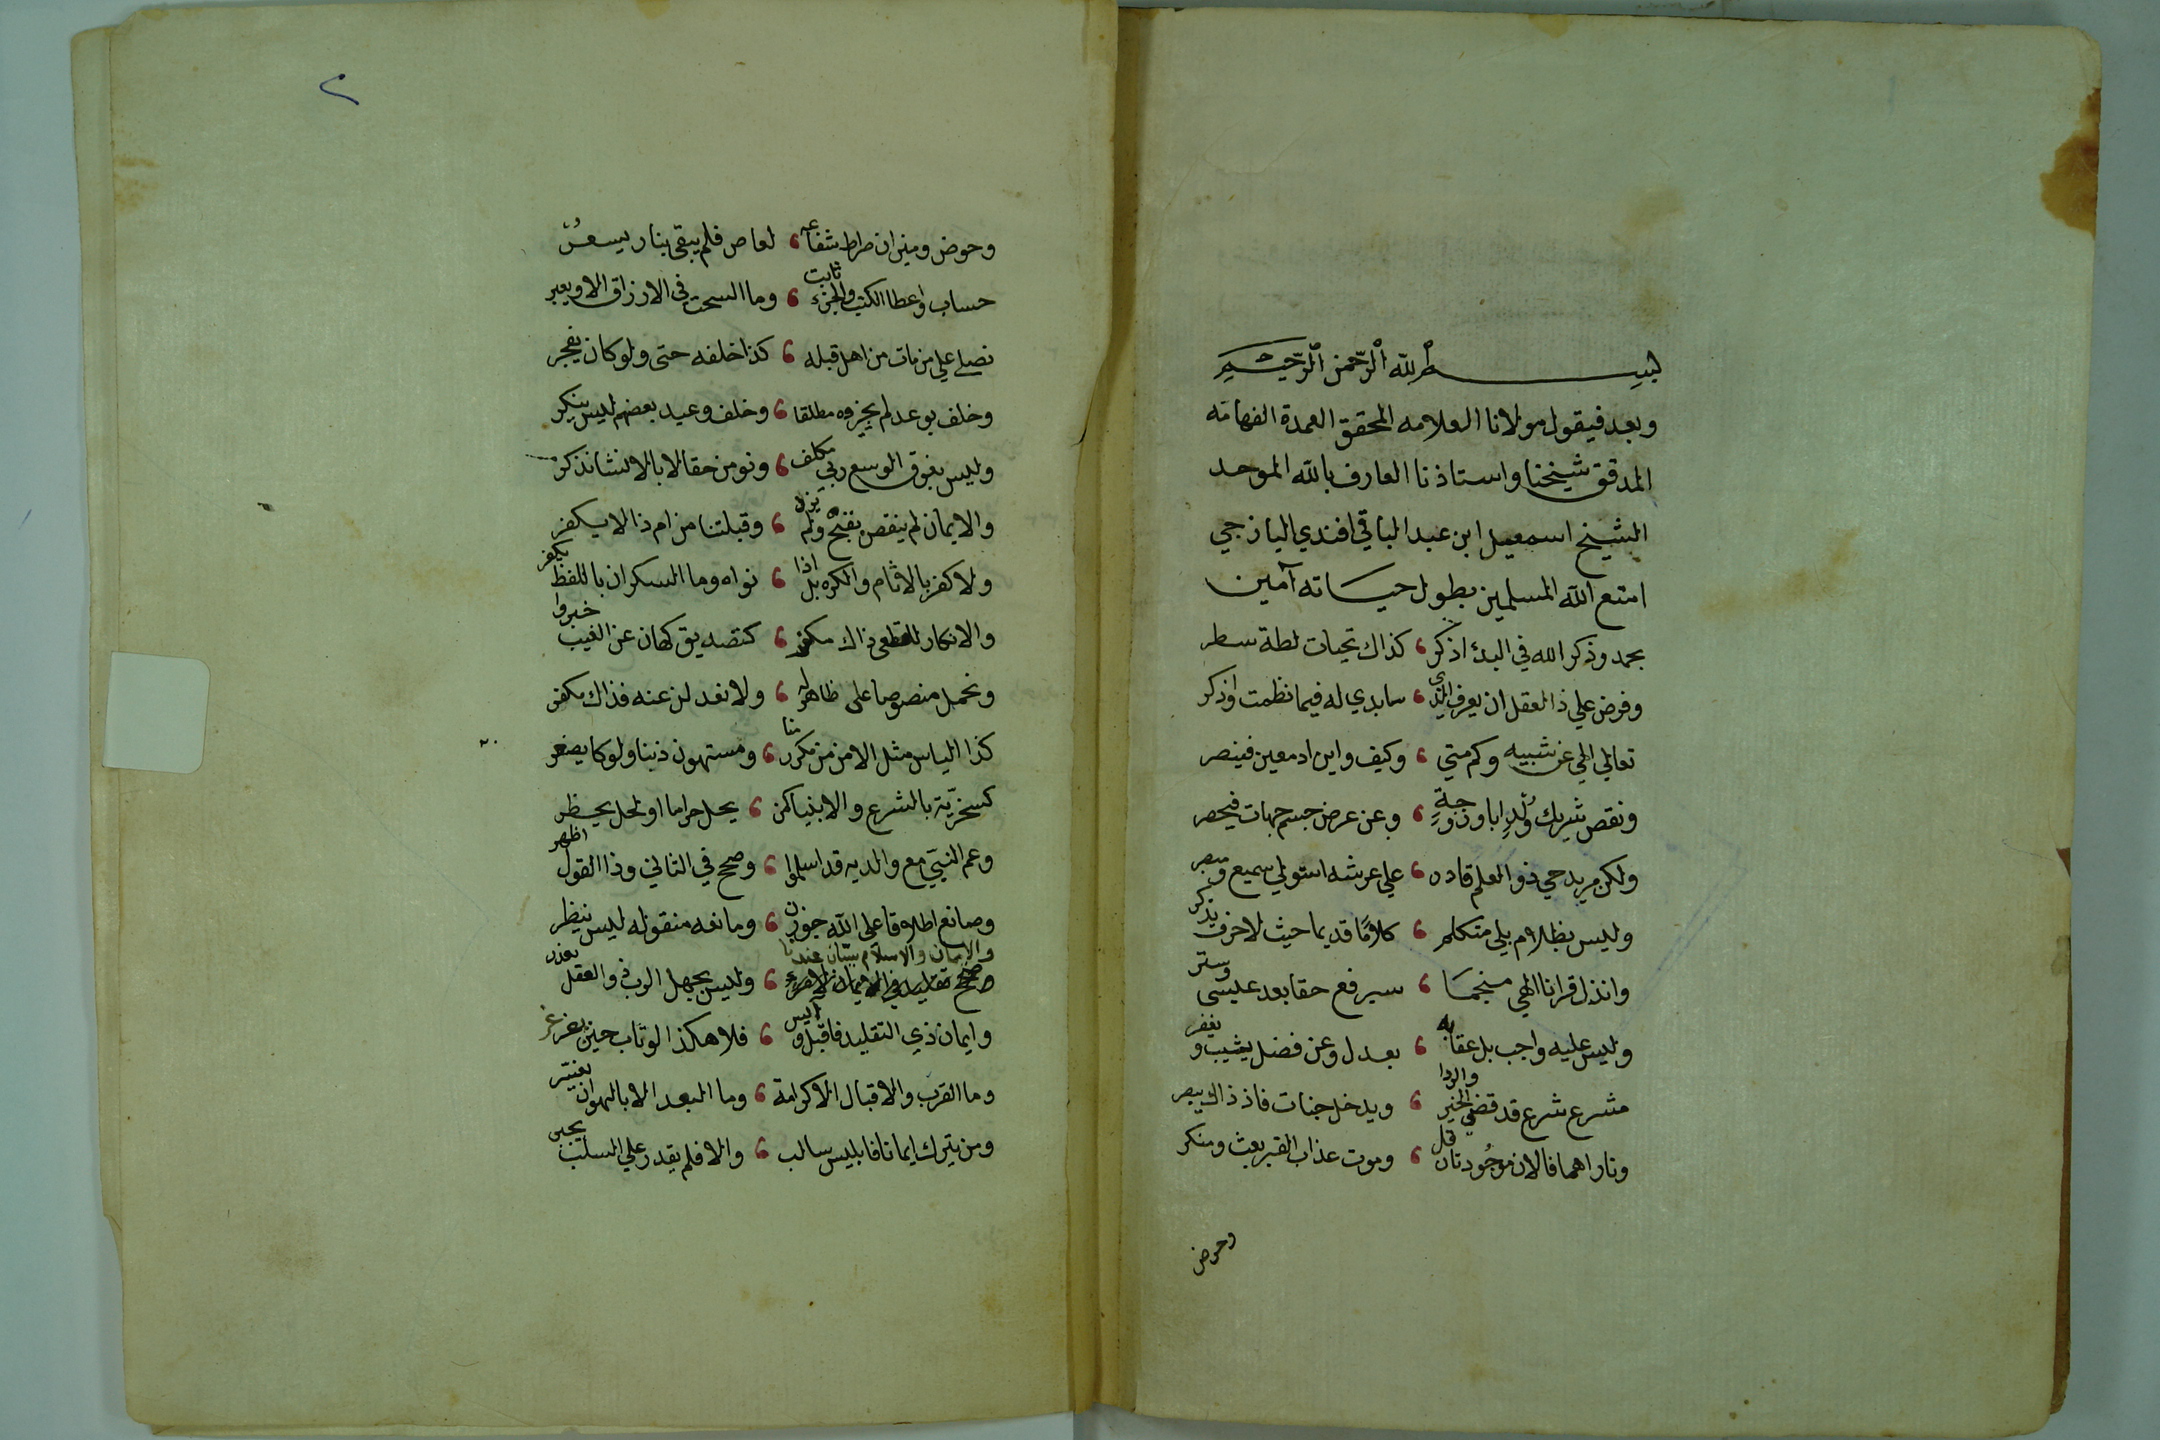 بسم الله الرحمن الرحيم
وبعد فيقول مولانا العلامه المحقق العمدة الفهامه
المدقق شيخنا واستاذنا العارف بالله الموحد
الشيخ اسمعيل ابن عبد الباقي افندي اليازجي
امتع الله المسلمين بطول حياته آمين
بحمد وذكر الله في البدأ اذكر ، كذاك تحيات لطة سطر
وفرض علي ذا العقل ان يعرف الذي ، سابدي له فيما نظمت واذكر
تعالي الهي عن شبيه وكم متي ، وكيف واين اد معين فينصر
ونقص شريك ولد ابا وزوجة ، وعن عرض جسم جهات فيحصر
ولكن مريد حي ذو العلم قادر ، علي عرشه استولي سميع ومبصر
وليس بظلام بلي متكلم ، كلاما قديما حيث لا حرف يذكر
وانزل قرانا الهي منجما ، سيرفع حقا بعد عيسى وستر
وليس عليه واجب بل عقابه ، بعدل وعن فضل يثيب ويغفر
مشرع شرع قد قضي الخير والردا ، ويدخل جنات فاذ ذاك يبصر
ونار اهما فالان موجودتان قل ، وموت عذاب القبر بعث ومنكر
وحوض
وحوض وميزان صراط شفاعه ، لعاص فلم يبقى بنار يسعر
حساب واعطا الكتب والجزء ثابت ، وما السحت في الارزاق الا ويعبر
نصلي علي من مات من اهل قبله ، كذا خلفه حتى ولو كان يفجر
وخلف بوعد لم يجزوه مطلقا ، وخلف وعيد بعضهم ليس ينكر
وليس بفوق الوسع ربي مكلف ، ونومن حقا لا بالانشا نذكر
والايمان لم ينقص بقبح ولم يزد ، وقبلتنا من ام ذا لا يكفر
ولا كفر بالاثام والكره بل اذا ، نواه وما السكران باللفظ يكفر
والانكار للقطعي ذاك مكفر ، كتصديق كهان عن الغيب خبروا
ونحمل منصوصا على ظاهر له ، ولا نعدلن عنه فذاك مكفر
كذا الياس مثل الامن من مكر ربنا ، ومستهون ذنبا ولو كا يصغر
كسخرية بالشرع والانبيا كمن ، يحل حراما او لحل يحظر
وعم النبي مع والديه قد اسلموا ، وصح في الثاني وذا القول اظهر
وصانع اطلاقا على الله جوزن ، ومانعه منقوله ليس ينظر
والايمان والاسلام سيان عندنا ، وليس بجهل الرب ذو العقل يعذر
وايمان ذي التقليد فاقبل وليس ، فلا هكذا لو تاب حين يغرغر
وما القرب والاقبال الا كرامة ، وما البعد الا بالهوان يفسر
ومن يترك ايمانا فابليس سالب ، والا فلم يقدر علي السلب يجبر